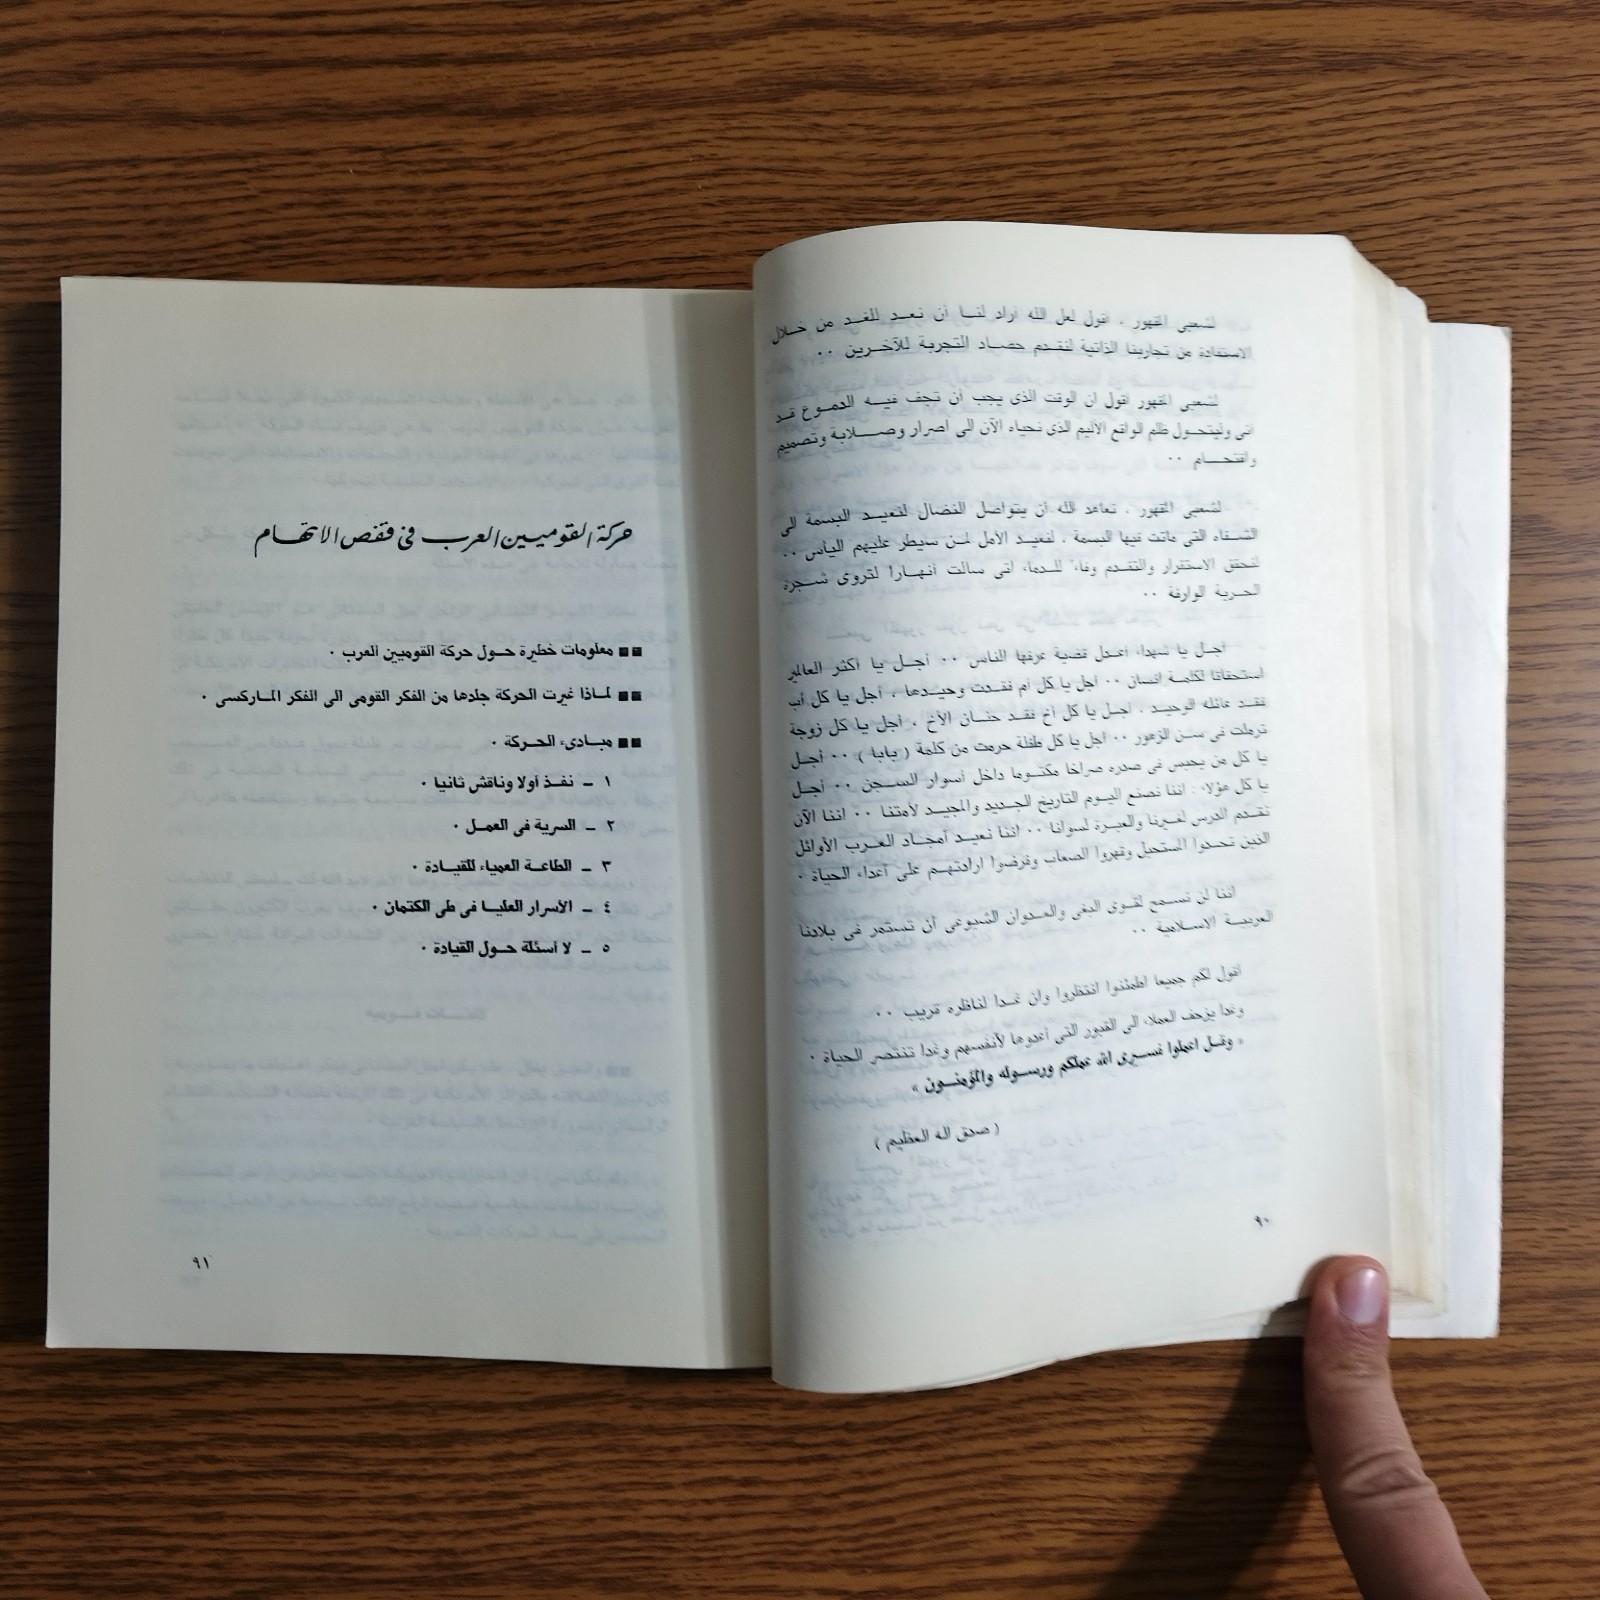 لشعبى المقهور ، أقول لعل الله أراد لنا أن نعد للغد من خلال
الاستفادة من تجاربنا الذاتية لنقدم حصاد التجربة للآخرين ٠٠
لشعبى المقهور أقول ان الوقت الذى يجب أن تجف فيه الدموع قد
أتى وليتحول ظلم الواقع الأليم الذى نحياه الآن الى اصرار وصلابة وتصميم
واقتحام ٠٠
لشعبى المقهور ، نعاهد الله أن يتواصل النضال لنعيد البسمة الى
الشفاه التى ماتت فيها البسمة ، لنعيد الأمل لمن سيطر عليهم اليأس ٠٠
لنحقق الاستقرار والتقدم وفاء للدماء التى سالت أنهارا لتروى شجرة
الحرية الوارفة ٠٠
أجل يا شهداء أعدل قضية عرفها الناس ٠٠ أجل يا أكثر العالمين
استحقاقا لكلمة انسان ٠٠ أجل يا كل أم فقدت وحيدها ، أجل يا كل أب
فقد عائله الوحيد ، أجل يا كل أخ فقد حنان الأخ ، أجل يا كل زوجة
ترملت فى سن الزهور ٠٠ أجل يا كل طفلة حرمت من كلمة ( بابا ) ٠٠ أجل
يا كل من يحبس فى صدره صراخا مكتوما داخل أسوار السجن ٠٠ أجل
يا كل هؤلاء : اننا نصنع اليوم التاريخ الجديد والمجيد لأمتنا ٠٠ اننا الآن
نقدم الدرس لغيرنا والعبرة لسوانا ٠٠ اننا نعيد أمجاد العرب الأوائل
الذين تحدوا المستحيل وقهروا الصعاب وفرضوا ارادتهم على أعداء الحياة ٠
اننا لن نسمح لقوى البغى والعدوان الشيوعى أن تستمر فى بلادنا
العربية الاسلامية ٠٠
أقول لكم جميعا اطمئنوا انتظروا وان غدا لناظره قريب ٠٠
وغدا يزحف العملاء الى القبور التى أعدوها لأنفسهم وغدا تنتصر الحياة ٠
« وقل اعملوا فسيرى الله عملكم ورسوله والمؤمنون »
( صدق اله العظيم )
٩٠
حركة القوميين العرب فى قفص الاتهام
■■ معلومات خطيرة حول حركة القوميين العرب ٠
■■ لماذا غيرت الحركة جلدها من الفكر القومى الى الفكر الماركسى ٠
■■ مبادىء الحركة ٠
١ ــ نفذ أولا وناقش ثانيا ٠
٢ ــ السرية فى العمل ٠
٣ ــ الطاعة العمياء للقيادة ٠
٤ ــ الأسرار العليا فى طى الكتمان ٠
٥ ــ لا أسئلة حول القيادة ٠
٩١